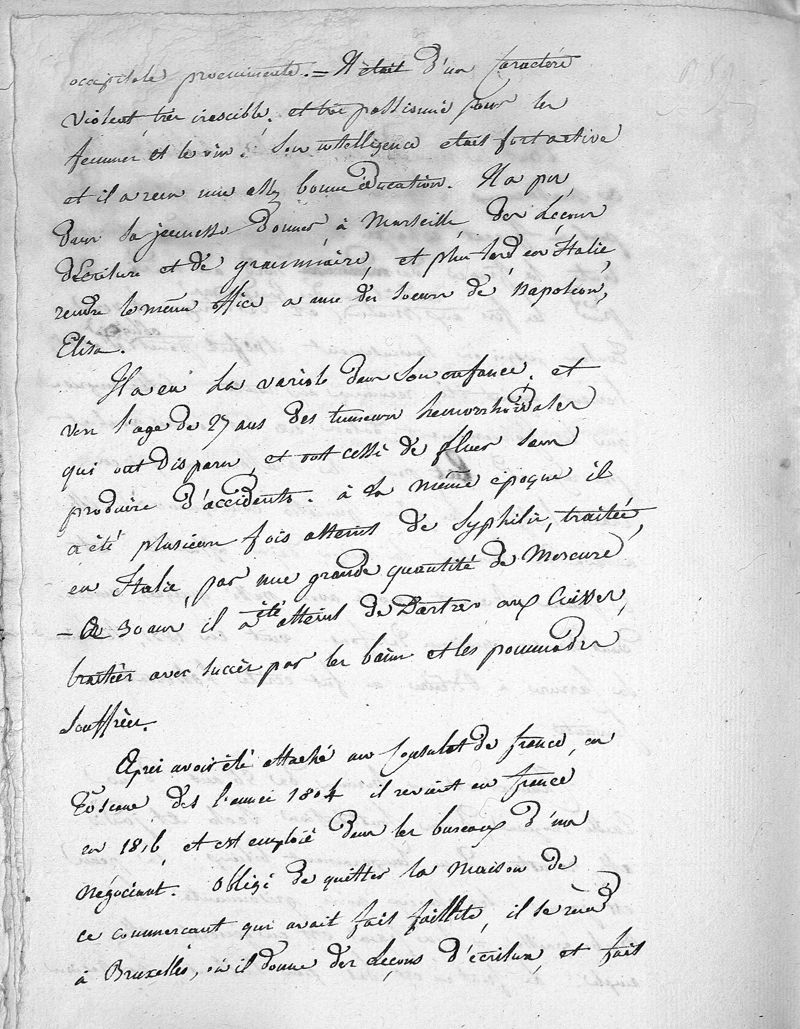 occipitale proeminente. = Il était d'un Caractère
violent, très irascible, et très passionné pour les
femmes et le vin. Son intelligence etait fort active
et il a reçu une assez bonne éducation. Il a pu,
dans sa jeunesse donner à Marseille des Leçons
d'Ecriture et de grammaire, et plus tard en Italie,
rendre le même office a une des soeurs de Napoleon,
Elisa.
Il a eu la variole dans son enfance, et
vers l'age de 27 ans des tumeurs hemorrhoïdales
qui ont disparu, et ont cessé de fluer sans
produire d'accidents. à la même époque il
a été plusieurs fois atteint de Syphilis, traitée,
en Italie, par une grande quantité de Mercure
- A 30 ans il a été atteint de Dartres aux Cuisses,
traitées avec succès par les bains et les pommades
souffrées.
Après avoir été attaché au Consulat de france, en
Toscane dès l'année 1804 il revient en france
en 1816 et est employé dans les bureaux d'un
négociant. Obligé de quitter la maison de
ce commerçant qui avait fait faillite, il se rend
à Bruxelles, où il donne des Leçons d'écriture, et fait